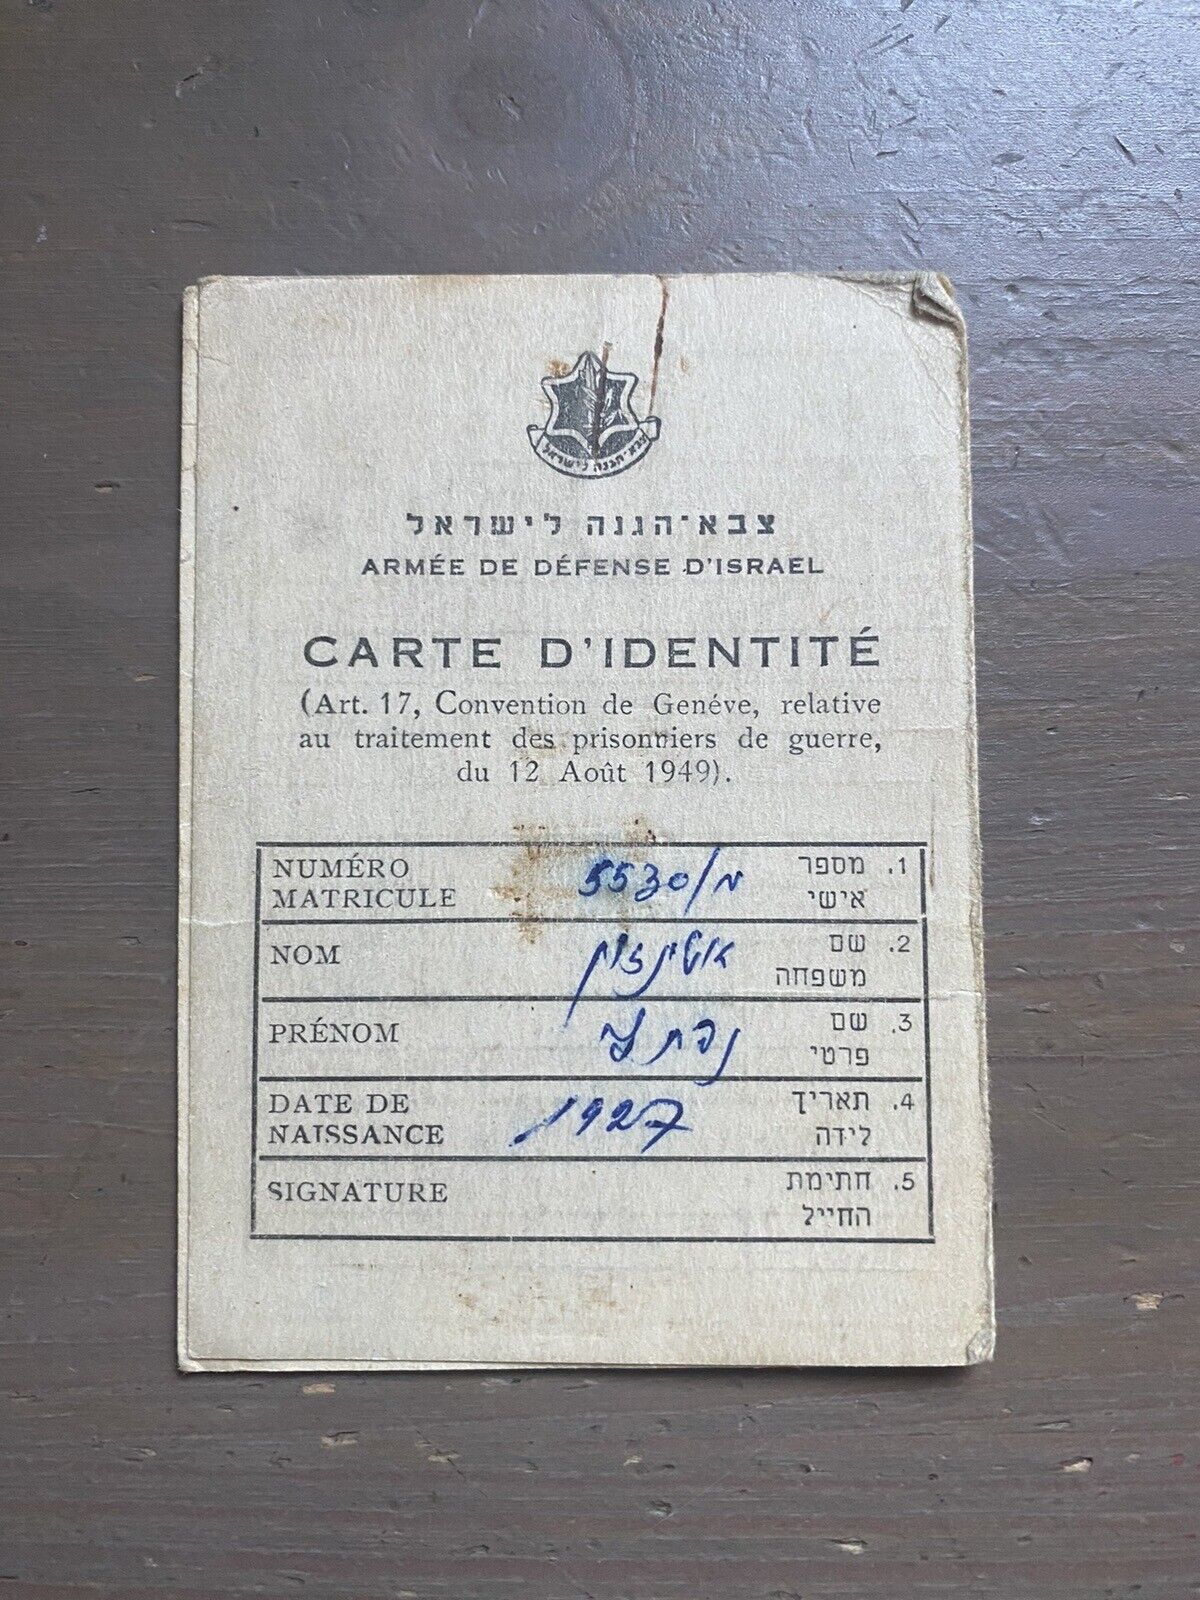 צבא-הגנה לישראל
צבא־הגנה לישראל
ARMÉE DE DÉFENSE D'ISRAEL
CARTE D'IDENTITÉ
(Art. 17, Convention de Genéve, relative
au traitement des prisonniers de guerre,
du 12 Août 1949).
NUMÉRO
MATRICULE
5530/מ
1. מספר
אישי
NOM
2. שם
משפחה
PRÉNOM
3. שם
פרטי
DATE DE
NAISSANCE
1927
4. תאריך
לידה
SIGNATURE
5. חתימת
החייל